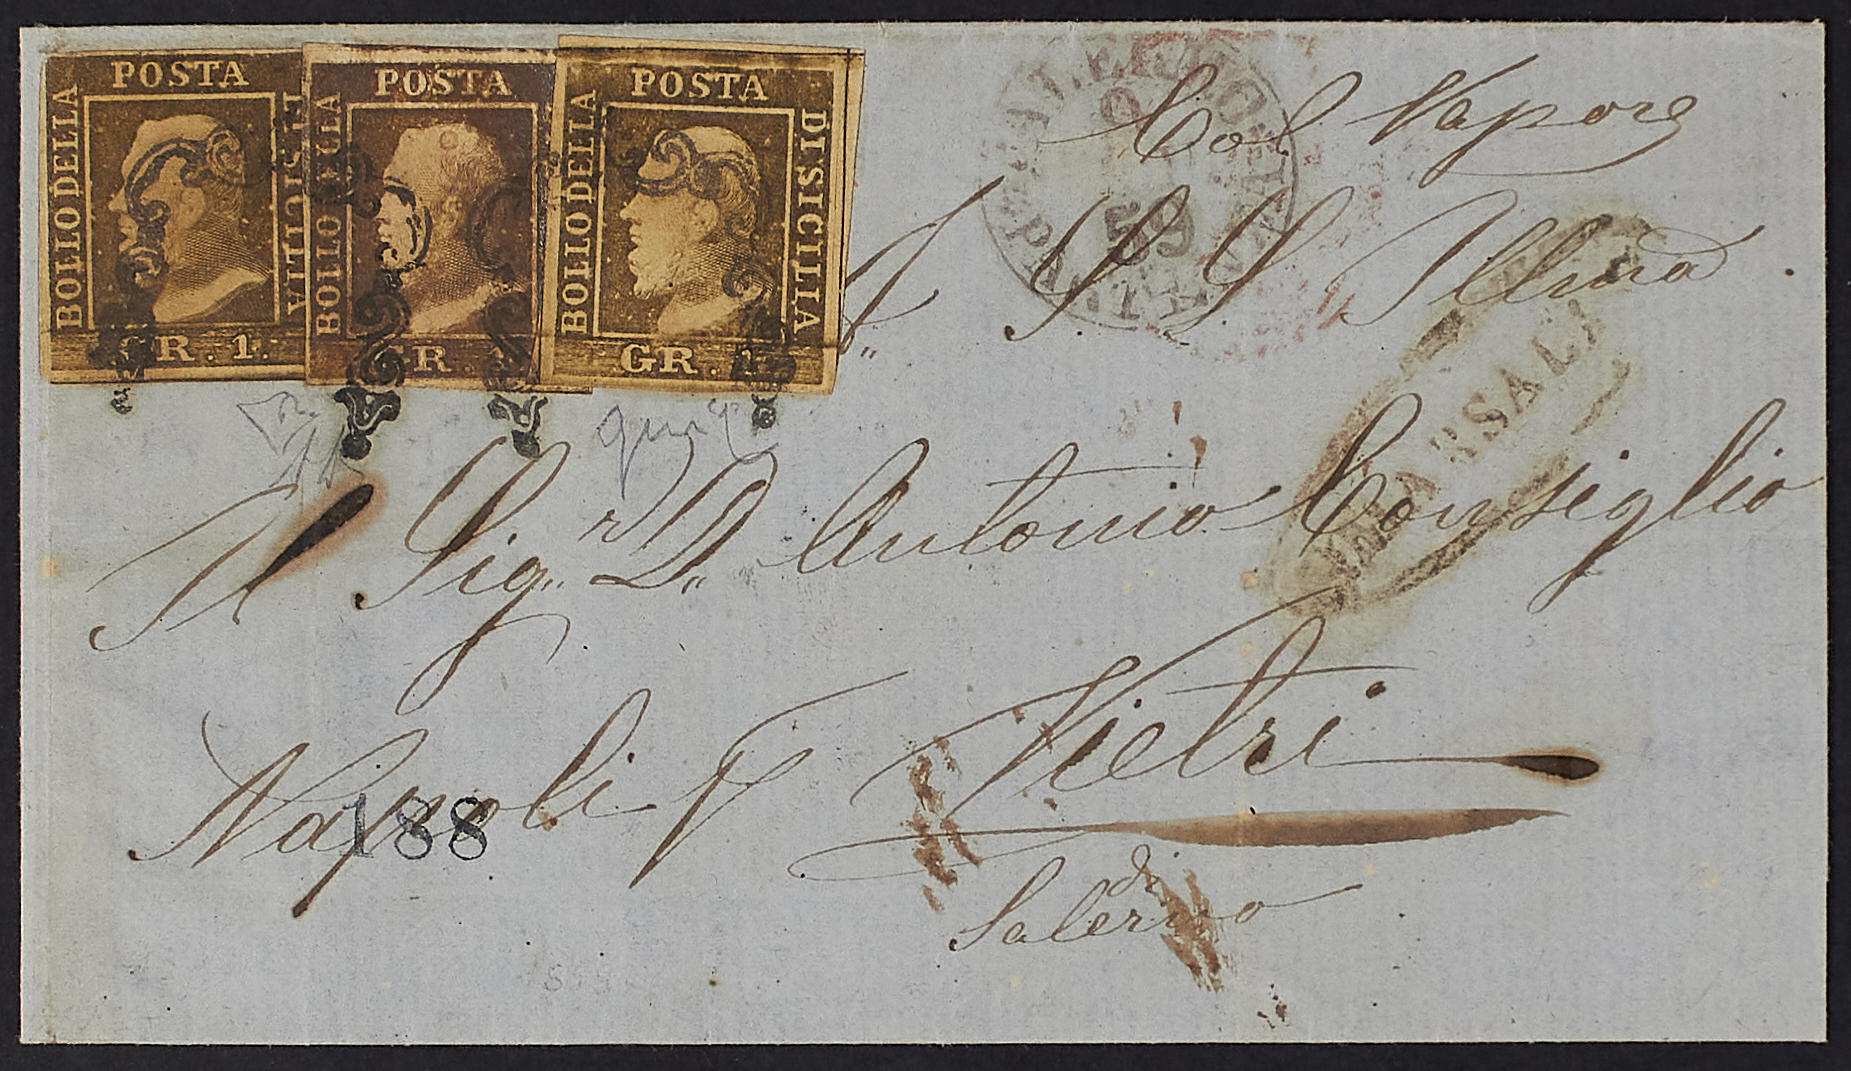 POSTA
BOLLO DELLA
DI SICILIA
GR. 1.
POSTA
BOLLO DELLA
GR.
POSTA
BOLLO DELLA
DI SICILIA
GR. 1.
59
Col Vapore
A S. S. Illma
MARSALA
Il Sig.r D. Antonio Consiglio
Napoli p Vietri
188
di
Salerno